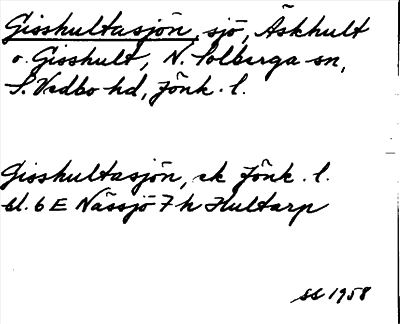 Gisshultasjön, sjö, Äskhult
o. Gisshult, N. Solberga sn,
S. Vedbo hd, Jönk. l.
Gisshultasjön, ek Jönk. l.
bl. 6 E Nässjö 7 h Hultarp
1958